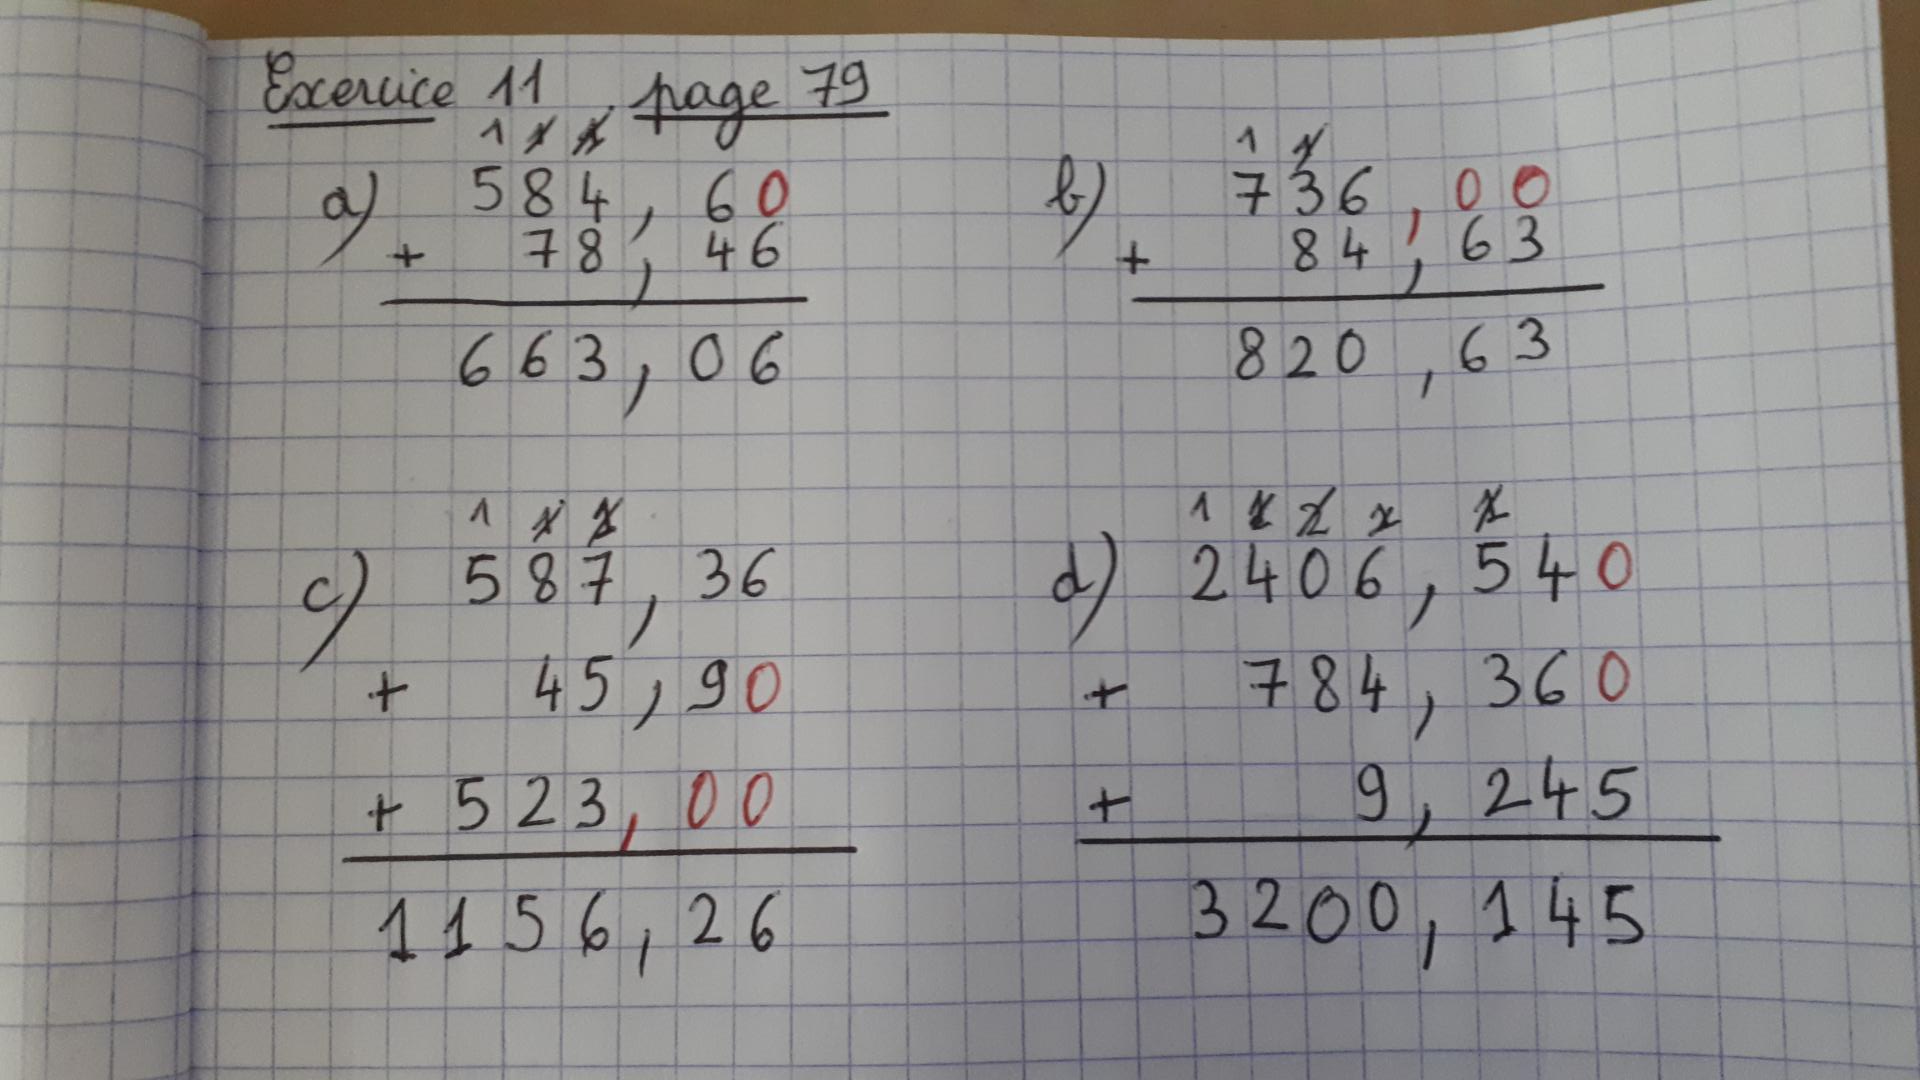 Exercice 11 page 79
1 1 1
a) 584,60
+ 78,46
663,06
1 1
b) 736,00
+ 84,63
820,63
1 1 1
c) 587,36
+ 45,90
+ 523,00
1156,26
1 1
d) 2406,540
+ 784,360
+ 9,245
3200,145